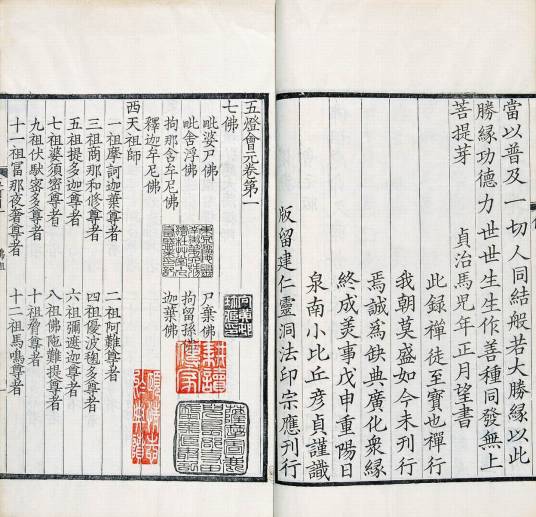 當以普及一切人同結般若大勝緣以此
勝緣功德力世世生生作善種同發無上
菩提芽
貞治馬児年正月望書
此録禪徒至寶也禪行
我朝莫盛如今未刊行
焉誠為缺典廣化衆緣
終成美事戊申重陽日
泉南小比丘彦貞謹識
版留建仁靈洞法印宗應刊行
五燈會元卷第一
七佛
毗婆尸佛 尸棄佛
毗舍浮佛 拘留孫
拘那舍牟尼佛 迦葉佛
釋迦牟尼佛
西天祖師
一祖摩訶迦葉尊者 二祖阿難尊者
三祖商那和修尊者 四祖優波毱多尊者
五祖提多迦尊者 六祖彌遮迦尊者
七祖婆須密尊者 八祖佛陁難提尊者
九祖伏馱密多尊者 十祖脅尊者
十一祖富那夜奢尊者 十二祖馬鳴尊者